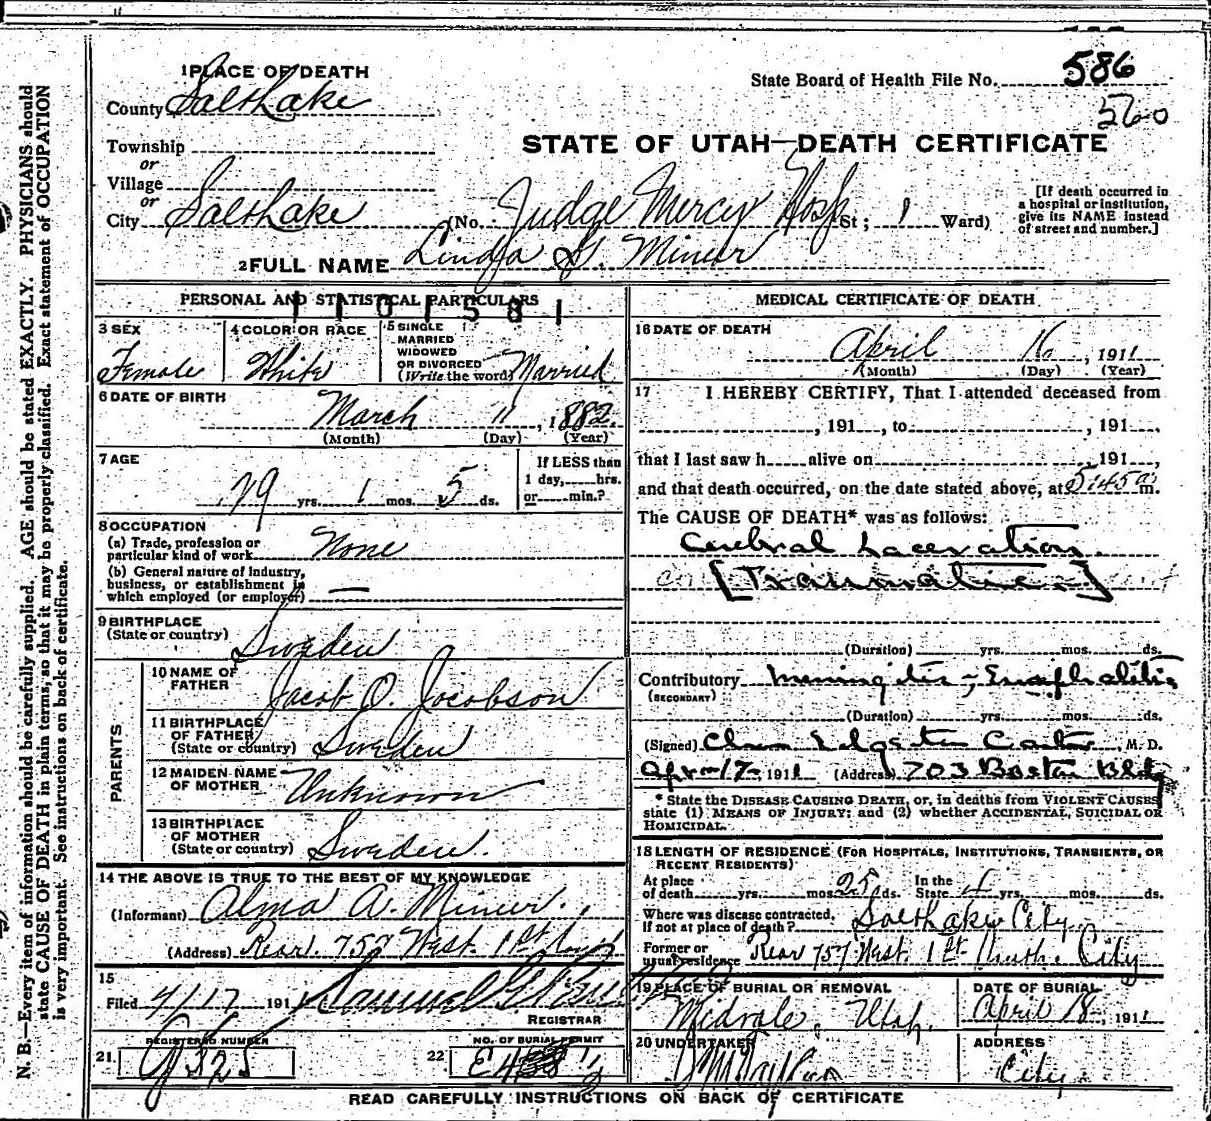 N. B.—Every item of information should be carefully supplied. AGE should be stated EXACTLY. PHYSICIANS should
state CAUSE OF DEATH in plain terms, so that it may be properly classified. Exact statement of OCCUPATION
is very important. See instructions on back of certificate.
1 PLACE OF DEATH
State Board of Health File No. 586
560
County Salt Lake
STATE OF UTAH—DEATH CERTIFICATE
Township
or
Village
or
City Salt Lake (No. Judge Mercy Hosp St; 1 Ward)
[If death occurred in
a hospital or institution,
give its NAME instead
of street and number.]
2 FULL NAME Linda G. Minear
PERSONAL AND STATISTICAL PARTICULARS
1101581
3 SEX
Female
4 COLOR OR RACE
White
5 SINGLE
MARRIED
WIDOWED
OR DIVORCED
(Write the word) Married
6 DATE OF BIRTH
March 11, 1882
(Month) (Day) (Year)
7 AGE
29 yrs. 1 mos. 5 ds.
If LESS than
1 day, hrs.
or min.?
8 OCCUPATION
(a) Trade, profession or
particular kind of work None
(b) General nature of industry,
business, or establishment in
which employed (or employer) —
9 BIRTHPLACE
(State or country) Sweden
PARENTS
10 NAME OF
FATHER Jacob O. Jacobson
11 BIRTHPLACE
OF FATHER
(State or country) Sweden
12 MAIDEN NAME
OF MOTHER Unknown
13 BIRTHPLACE
OF MOTHER
(State or country) Sweden.
14 THE ABOVE IS TRUE TO THE BEST OF MY KNOWLEDGE
(Informant) Alma A. Minear.
(Address) Rear. 757 West. 1st
15
Filed 4/17 191
REGISTRAR
REGISTERED NUMBER
21. G 325
NO. OF BURIAL PERMIT
22
MEDICAL CERTIFICATE OF DEATH
16 DATE OF DEATH
April 16, 1911
(Month) (Day) (Year)
17 I HEREBY CERTIFY, That I attended deceased from
, 191 , to , 191 .
that I last saw h alive on 191 ,
and that death occurred, on the date stated above, at 5:45 a m.
The CAUSE OF DEATH* was as follows:
Cerebral Laceration.
[Traumatic]
(Duration) yrs. mos. ds.
Contributory Meningitis - Encephalitis
(SECONDARY)
(Duration) yrs. mos. ds.
(Signed) , M. D.
Apr-17-, 1911 (Address) 703 Boston Bldg
* State the DISEASE CAUSING DEATH, or, in deaths from VIOLENT CAUSES,
state (1) MEANS OF INJURY; and (2) whether ACCIDENTAL, SUICIDAL OR
HOMICIDAL.
18 LENGTH OF RESIDENCE (FOR HOSPITALS, INSTITUTIONS, TRANSIENTS, OR
RECENT RESIDENTS)
At place
of death yrs. mos. 25 ds. In the
State 4 yrs. mos. ds.
Where was disease contracted,
if not at place of death? Salt Lake City
Former or
usual residence Rear 757 West. 1st North. City
19 PLACE OF BURIAL OR REMOVAL
Midvale, Utah.
DATE OF BURIAL
April 18, 1911
20 UNDERTAKER
ADDRESS
City
READ CAREFULLY INSTRUCTIONS ON BACK OF CERTIFICATE